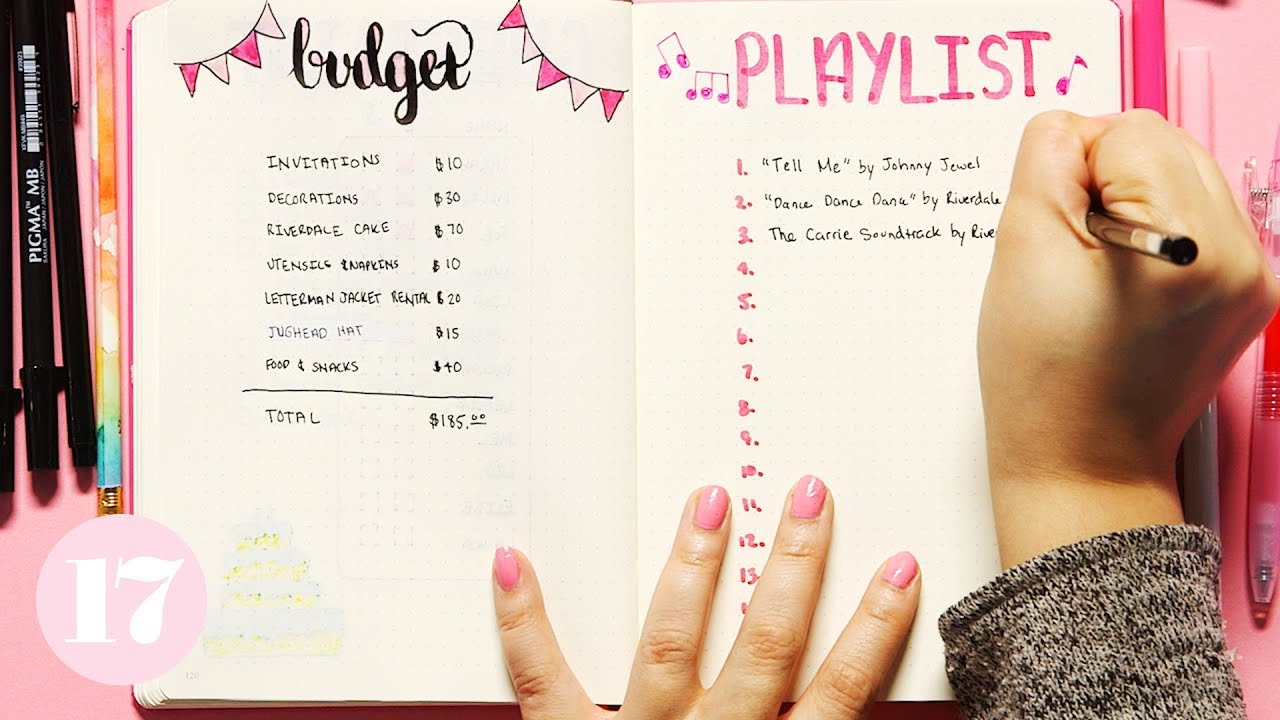 budget
INVITATIONS $10
DECORATIONS $30
RIVERDALE CAKE $70
UTENSILS & NAPKINS $10
LETTERMAN JACKET RENTAL $20
JUGHEAD HAT $15
FOOD & SNACKS $40
TOTAL $185.00
PLAYLIST
1. "Tell Me" by Johnny Jewel
2. "Dance Dance Dance" by Riverdale
3. The Carrie Soundtrack by River
4.
5.
6.
7.
8.
9.
10.
11.
12.
13.
PIGMA™ MB
SAKURA
17
120